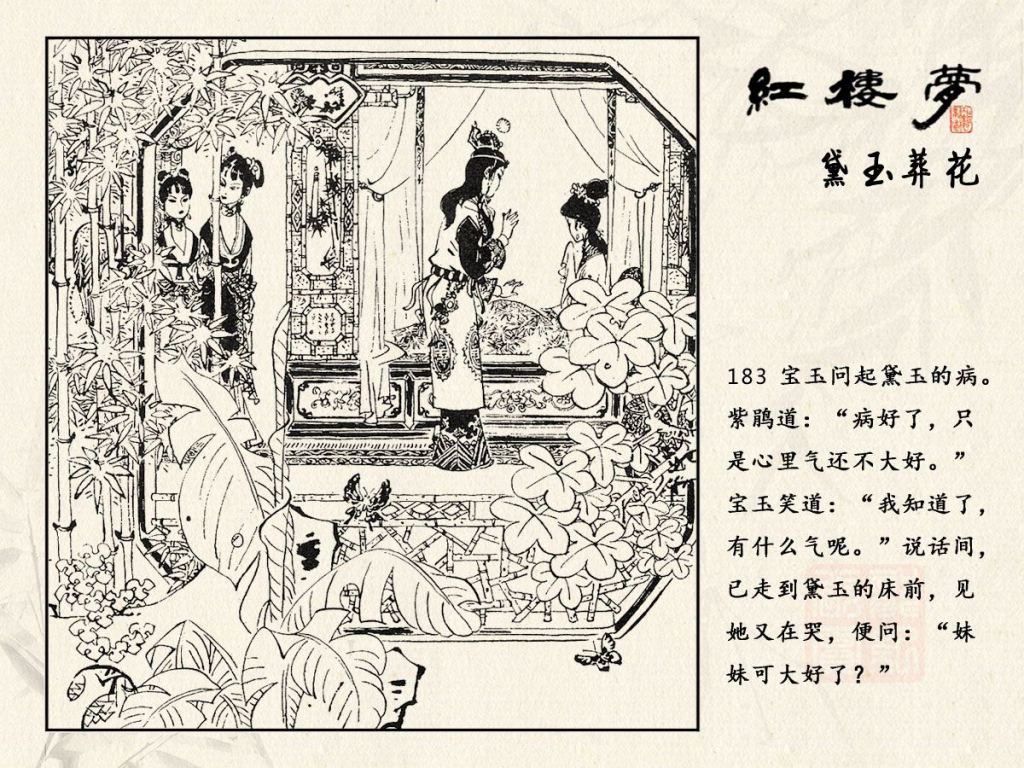 紅樓夢
黛玉葬花
183 宝玉问起黛玉的病。
紫鹃道：“病好了，只
是心里气还不大好。”
宝玉笑道：“我知道了，
有什么气呢。”说话间，
已走到黛玉的床前，见
她又在哭，便问：“妹
妹可大好了？”